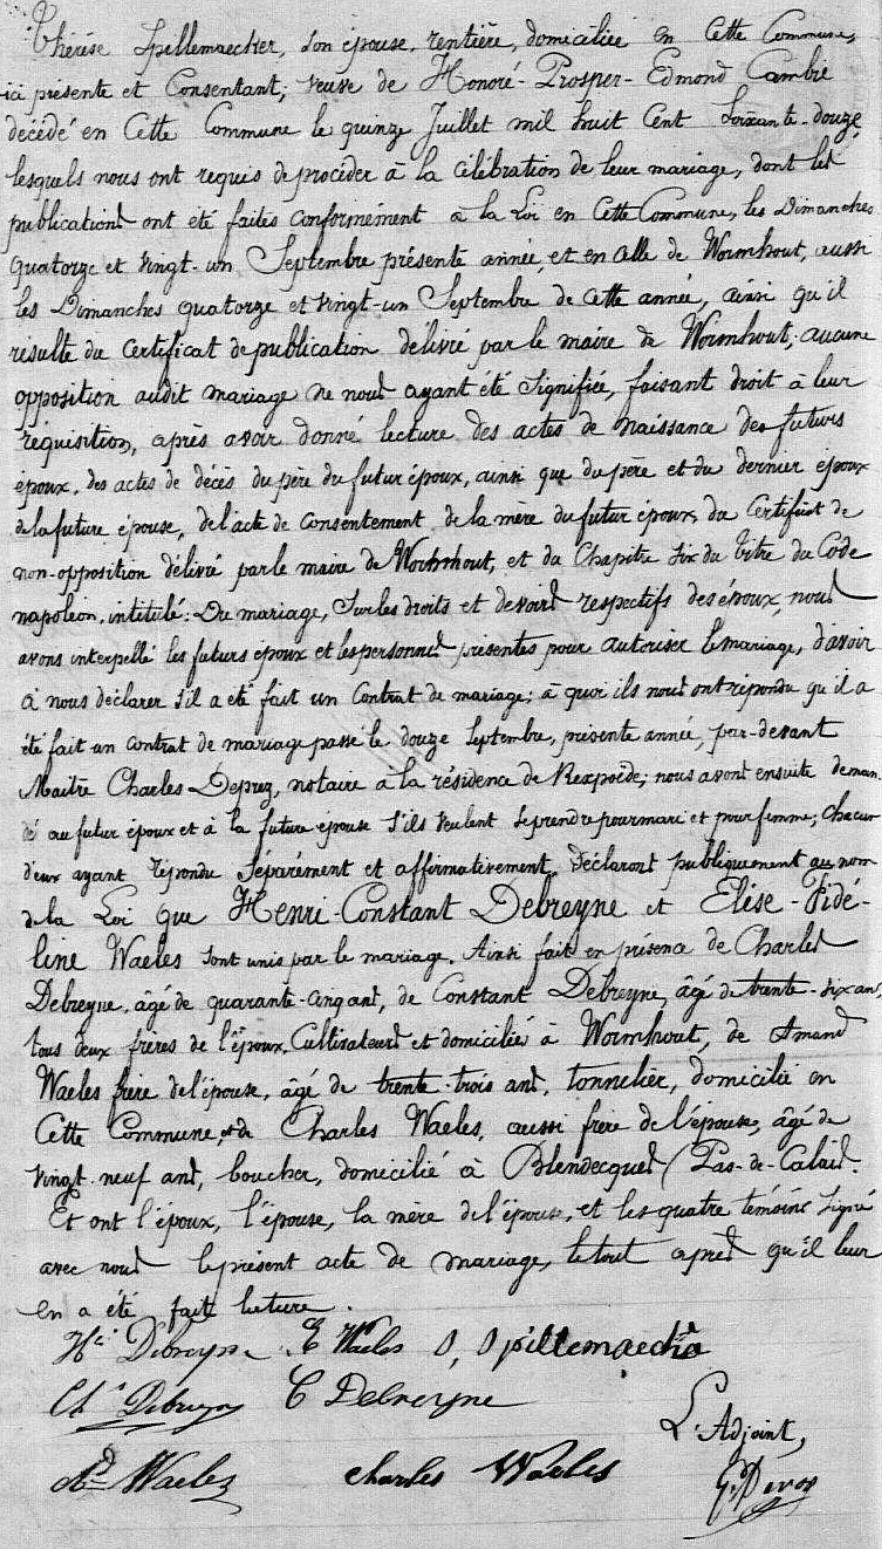 Thérèse Spellemaecker, son épouse, rentière, domiciliée en cette Commune,
ici présente et Consentant; veuve de Honoré-Prosper-Edmond Cambié
décédé en Cette Commune le quinze Juillet mil huit Cent Soixante-douze,
lesquels nous ont requis de procéder à la célébration de leur mariage, dont les
publications ont été faites conformément à la Loi en Cette Commune, les Dimanches
quatorze et vingt-un Septembre présente année, et en celle de Wormhout, aussi
les Dimanches quatorze et vingt-un Septembre de cette année, ainsi qu'il
résulte du Certificat de publication délivré par le maire de Wormhout; aucune
opposition audit mariage ne nous ayant été Signifiée, faisant droit à leur
réquisition, après avoir donné lecture des actes de naissance des futurs
époux, des actes de décès du père du futur époux, ainsi que du père et du dernier époux
de la future épouse, de l'acte de Consentement de la mère du futur époux, du Certificat de
non-opposition délivré par le maire de Wormhout, et du Chapitre Six du Titre du Code
napoléon, intitulé: Du mariage, Sur les droits et devoirs respectifs des époux, nous
avons interpellé les futurs époux et les personnes présentes pour autoriser le mariage, d'avoir
à nous déclarer s'il a été fait un Contrat de mariage; à quoi ils nous ont répondu qu'il a
été fait un contrat de mariage passé le douze Septembre, présente année, par-devant
Maître Charles Deprez, notaire à la résidence de Rexpoëde; nous avons ensuite deman-
dé au futur époux et à la future épouse s'ils veulent se prendre pour mari et pour femme; chacun
d'eux ayant répondu Séparément et affirmativement, Déclarons publiquement au nom
de la Loi que Henri-Constant Debreyne et Elise-Fidé-
line Waeles sont unis par le mariage. Ainsi fait en présence de Charles
Debreyne, âgé de quarante-cinq ans, de Constant Debreyne, âgé de trente-six ans,
tous deux frères de l'époux, Cultivateurs et domiciliés à Wormhout, de Amand
Waeles frère de l'épouse, âgé de trente-trois ans, tonnelier, domicilié en
Cette Commune, et de Charles Waeles, aussi frère de l'épouse, âgé de
vingt-neuf ans, boucher, domicilié à Blendecques (Pas-de-Calais.
Et ont l'époux, l'épouse, la mère de l'épouse, et les quatre témoins Signé
avec nous le présent acte de mariage, le tout après qu'il leur
en a été fait lecture.
Hri Debreyne E Waeles
Ch. Debreyne C Debreyne
L'Adjoint,
Ad Waeles charles Waeles